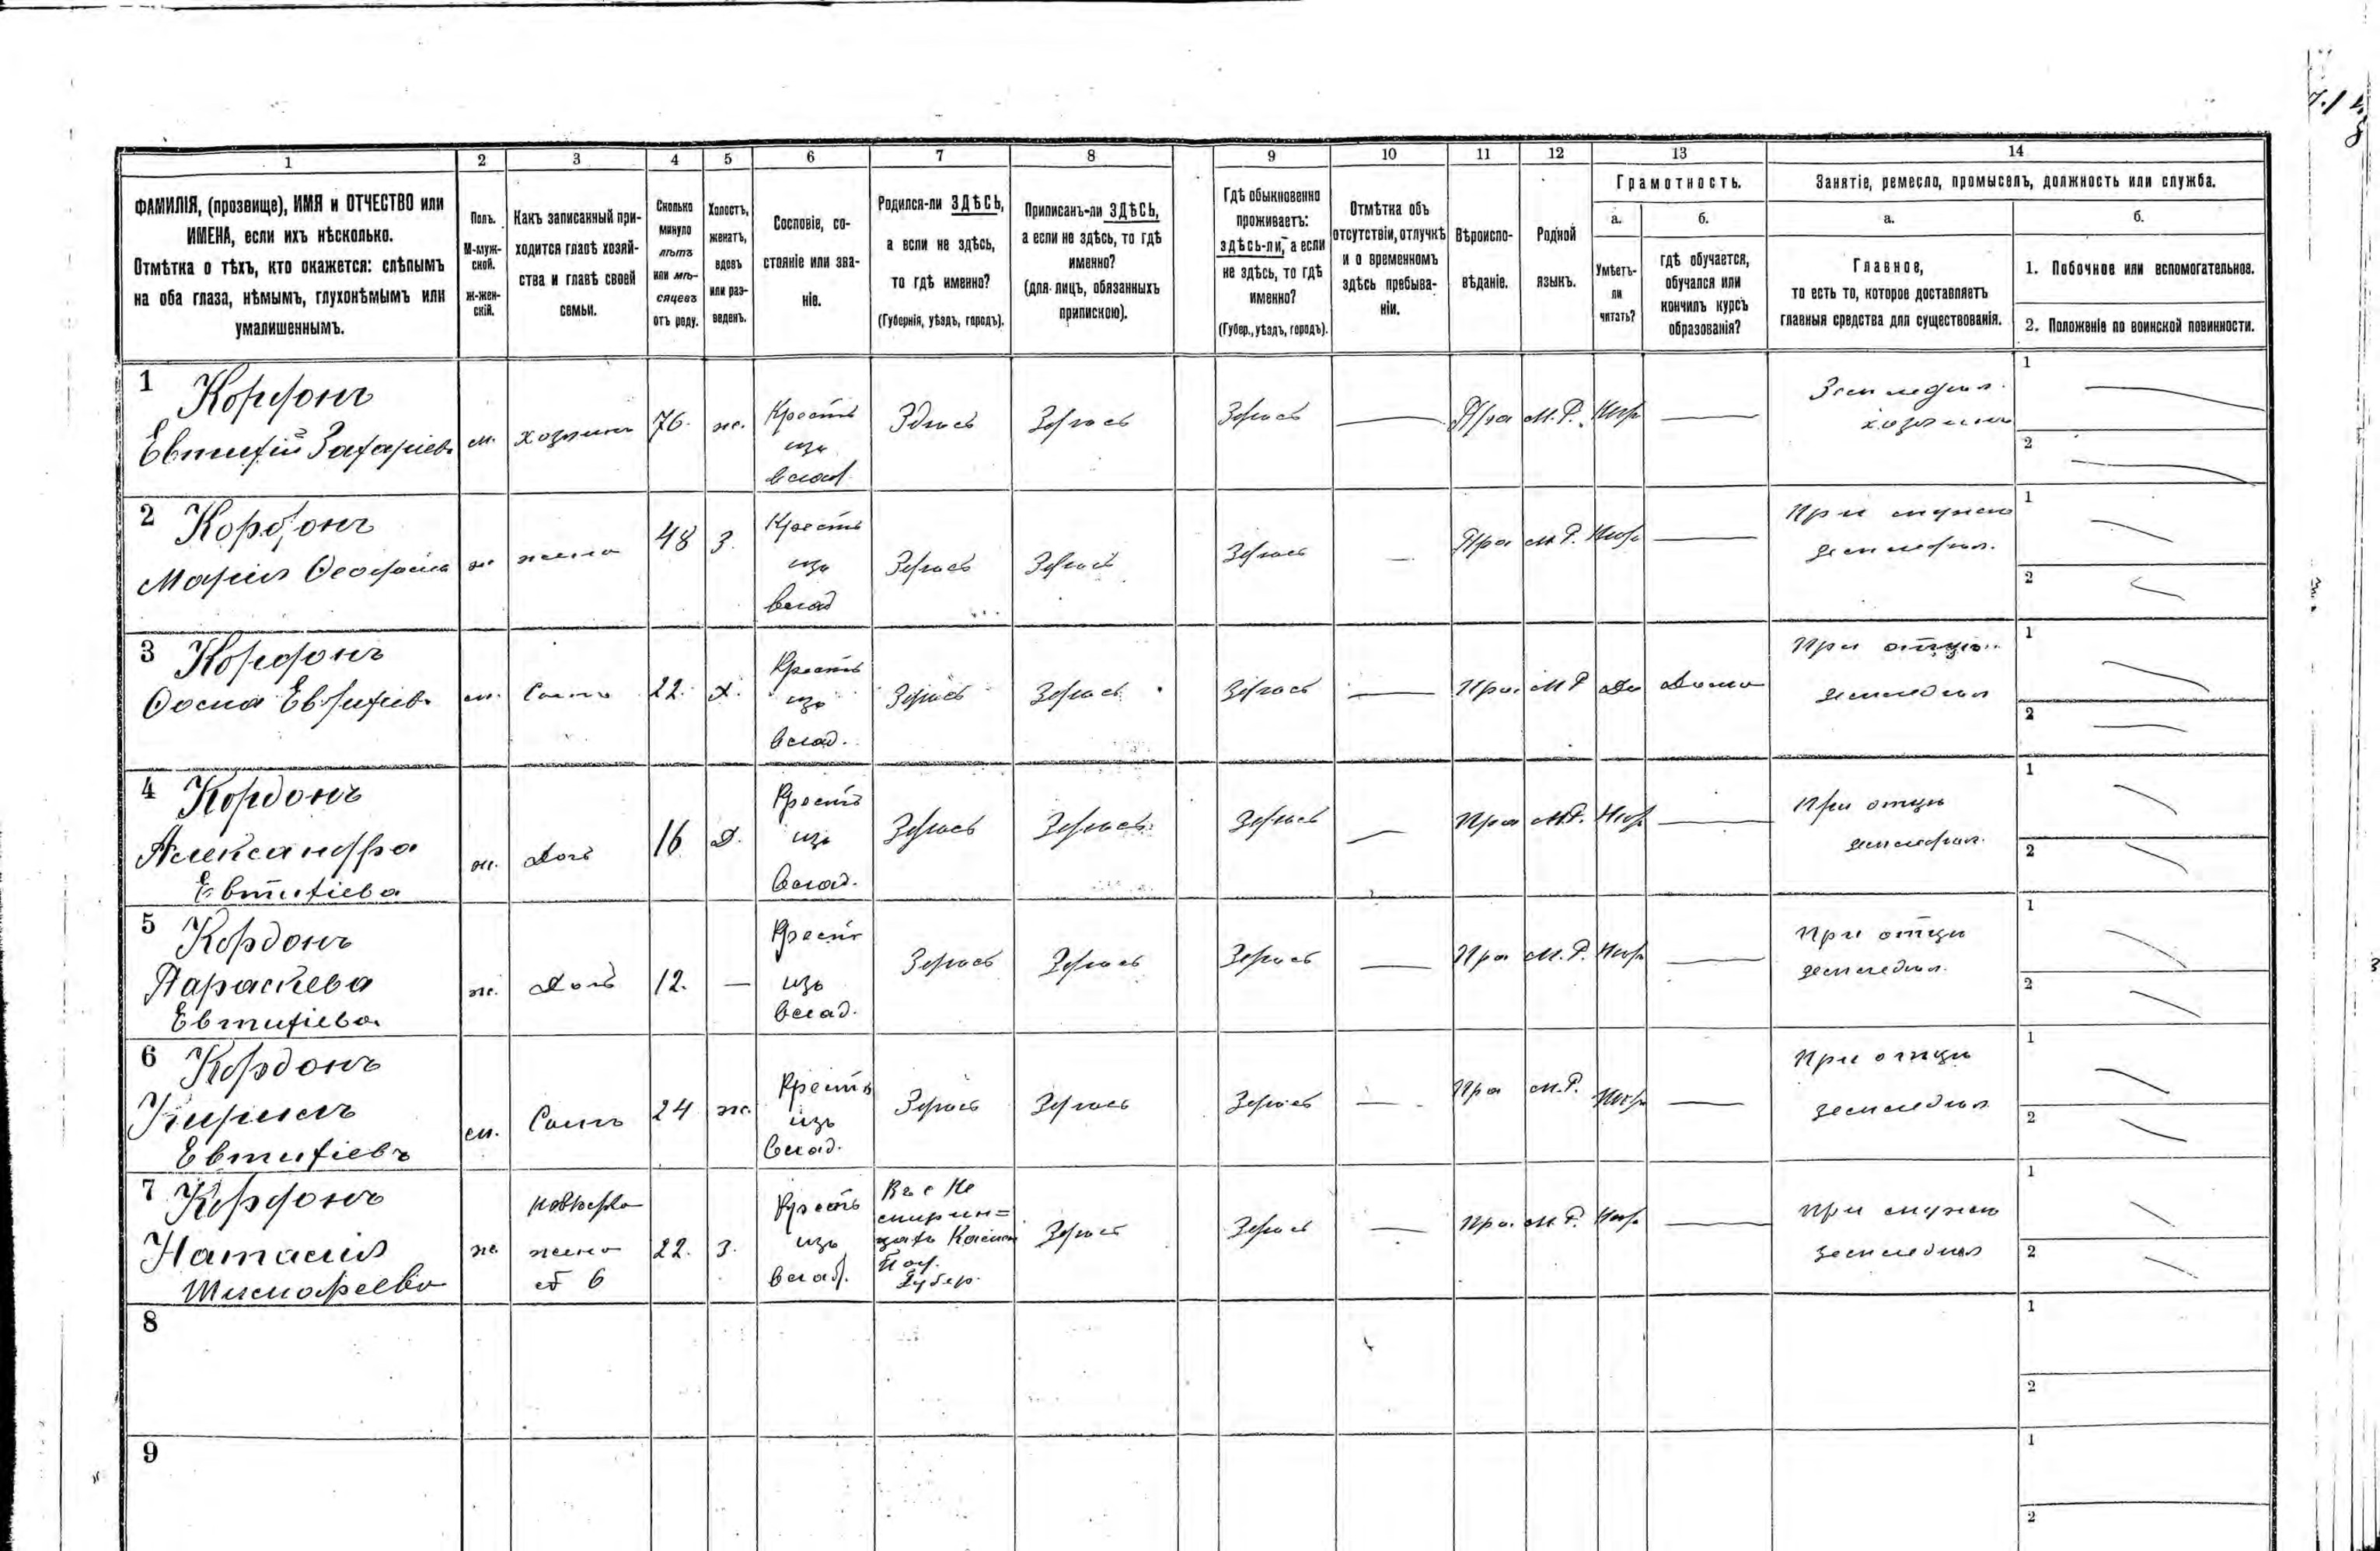 1 2 3 4 5 6 7 8 9 10 11 12 13 14
ФАМИЛІЯ, (прозвище), ИМЯ и ОТЧЕСТВО или
ИМЕНА, если ихъ нѣсколько.
Отмѣтка о тѣхъ, кто окажется: слѣпымъ
на оба глаза, нѣмымъ, глухонѣмымъ или
умалишеннымъ.
Полъ.
М-муж-
ской.
ж-жен-
скій.
Какъ записанный при-
ходится главѣ хозяй-
ства и главѣ своей
семьи.
Сколько
минуло
лѣтъ
или мѣ-
сяцевъ
отъ роду.
Холостъ,
женатъ,
вдовъ
или раз-
веденъ.
Сословіе, со-
стояніе или зва-
ніе.
Родился-ли ЗДѢСЬ,
а если не здѣсь,
то гдѣ именно?
(Губернія, уѣздъ, городъ).
Приписанъ-ли ЗДѢСЬ,
а если не здѣсь, то гдѣ
именно?
(для лицъ, обязанныхъ
припискою).
Гдѣ обыкновенно
проживаетъ:
здѣсь-ли, а если
не здѣсь, то гдѣ
именно?
(Губер., уѣздъ, городъ).
Отмѣтка объ
отсутствіи, отлучкѣ
и о временномъ
здѣсь пребыва-
ніи.
Вѣроиспо-
вѣданіе.
Родной
языкъ.
Грамотность.
а.
Умѣетъ-
ли
читать?
б.
гдѣ обучается,
обучался или
кончилъ курсъ
образованія?
Занятіе, ремесло, промыселъ, должность или служба.
а.
Главное,
то есть то, которое доставляетъ
главныя средства для существованія.
б.
1. Побочное или вспомогательное.
2. Положеніе по воинской повинности.
1 Кордонъ
Евтихій Захаріевъ
м. хозяинъ 76. ж.
Крестъ
изъ
влад.
Здѣсь Здѣсь Здѣсь — Пра М.Р. Нѣт —
Земледѣл.
хозяинъ
1
2
2 Кордонъ
Марія
ж жена 48 З.
Крестъ
изъ
влад
Здѣсь Здѣсь Здѣсь — Пра М.Р. Нѣт —
При мужѣ
земледѣл.
1
2
3 Кордонъ
м. Сынъ 22. Х.
Крестъ
изъ
влад.
Здѣсь Здѣсь Здѣсь — Пра М Р Да Дома
При отцѣ
земледѣл
1
2
4 Кордонъ
Александра
Евтихіева
ж. Дочь 16 Д.
Крестъ
изъ
влад.
Здѣсь Здѣсь Здѣсь — Пра М.Р. Нѣт —
При отцѣ
земледѣл.
1
2
5 Кордонъ
Параскева
Евтихіева
ж. Дочь 12. —
Крестъ
изъ
влад.
Здѣсь Здѣсь Здѣсь — Пра М.Р. Нѣт —
При отцѣ
земледѣл.
1
2
6 Кордонъ
Кирилъ
Евтихіевъ
м. Сынъ 24 ж.
Крестъ
изъ
влад.
Здѣсь Здѣсь Здѣсь — Пра М.Р. Нѣт —
При отцѣ
земледѣл
1
2
7 Кордонъ
Наталія
ж.
жена
6
22. З.
Крестъ
изъ
влад.
Губер.
Здѣсь Здѣсь — Пра. М.Р. Нѣт —
При мужѣ
земледѣл
1
2
8
1
2
9
1
2